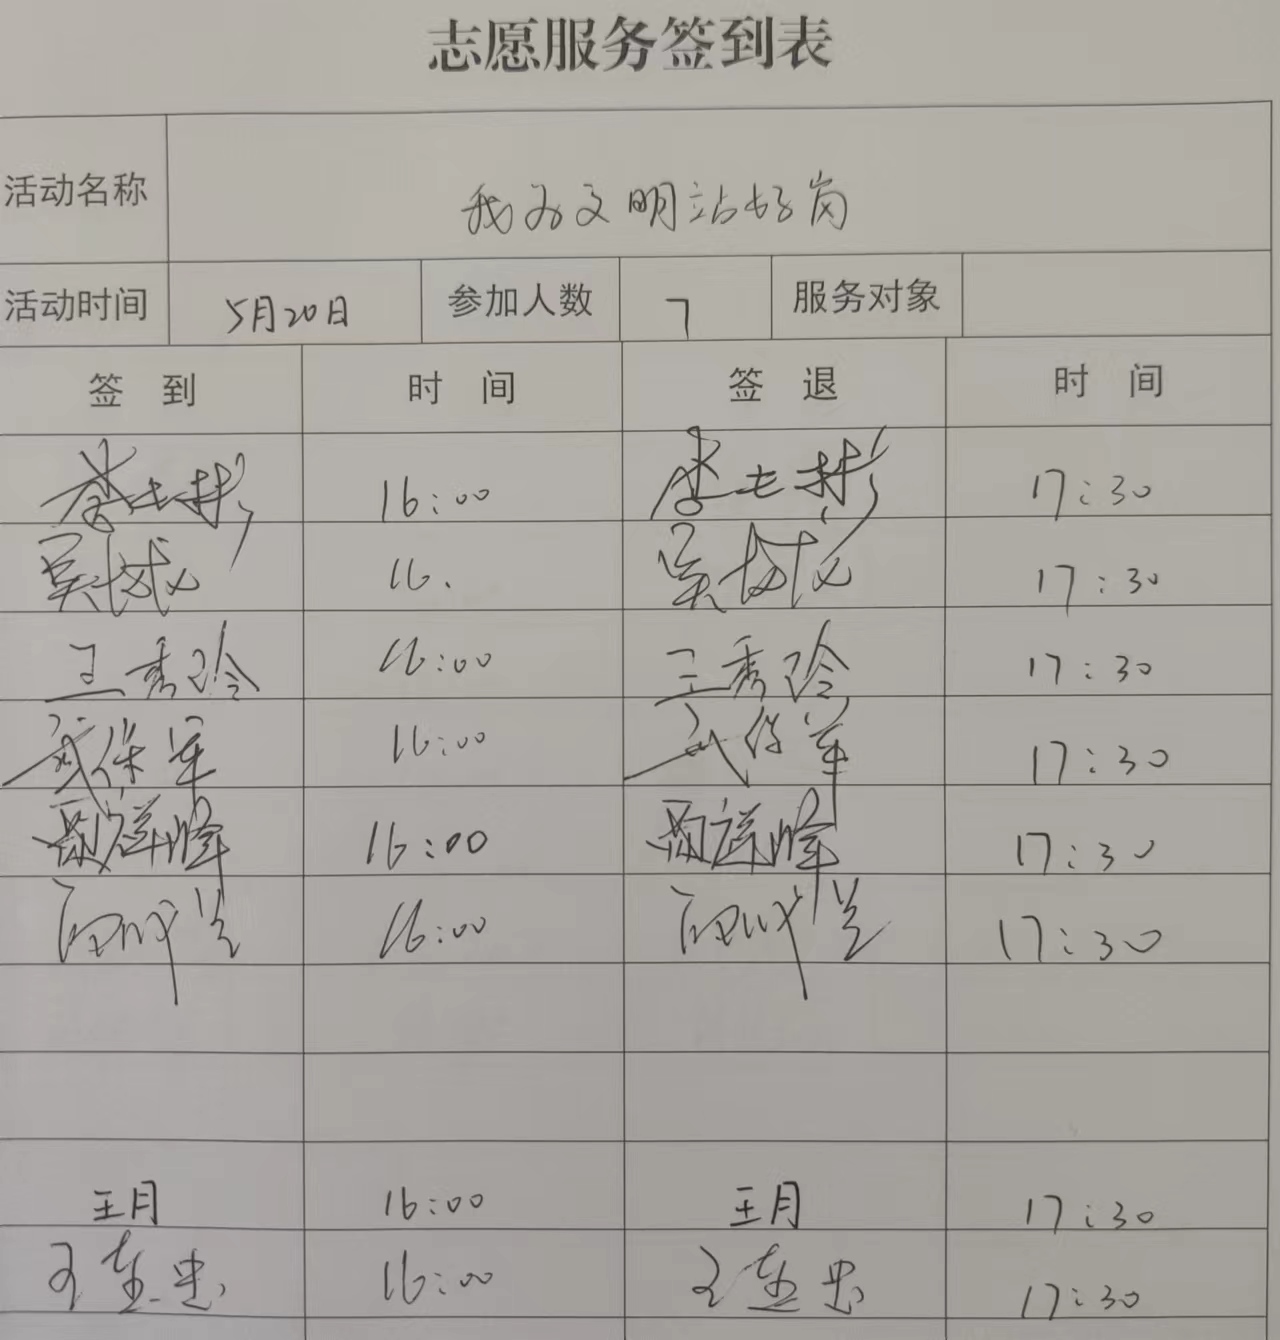 志愿服务签到表
活动名称 我为文明站好岗
活动时间 5月20日 参加人数 7 服务对象
签到 时间 签退 时间
李士彬 16:00 李士彬 17:30
吴城 16. 吴城 17:30
王秀玲 16:00 王秀玲 17:30
武保军 16:00 武保军 17:30
祥峰 16:00 祥峰 17:30
16:00 17:30
王月 16:00 王月 17:30
王忠 16:00 王忠 17:30